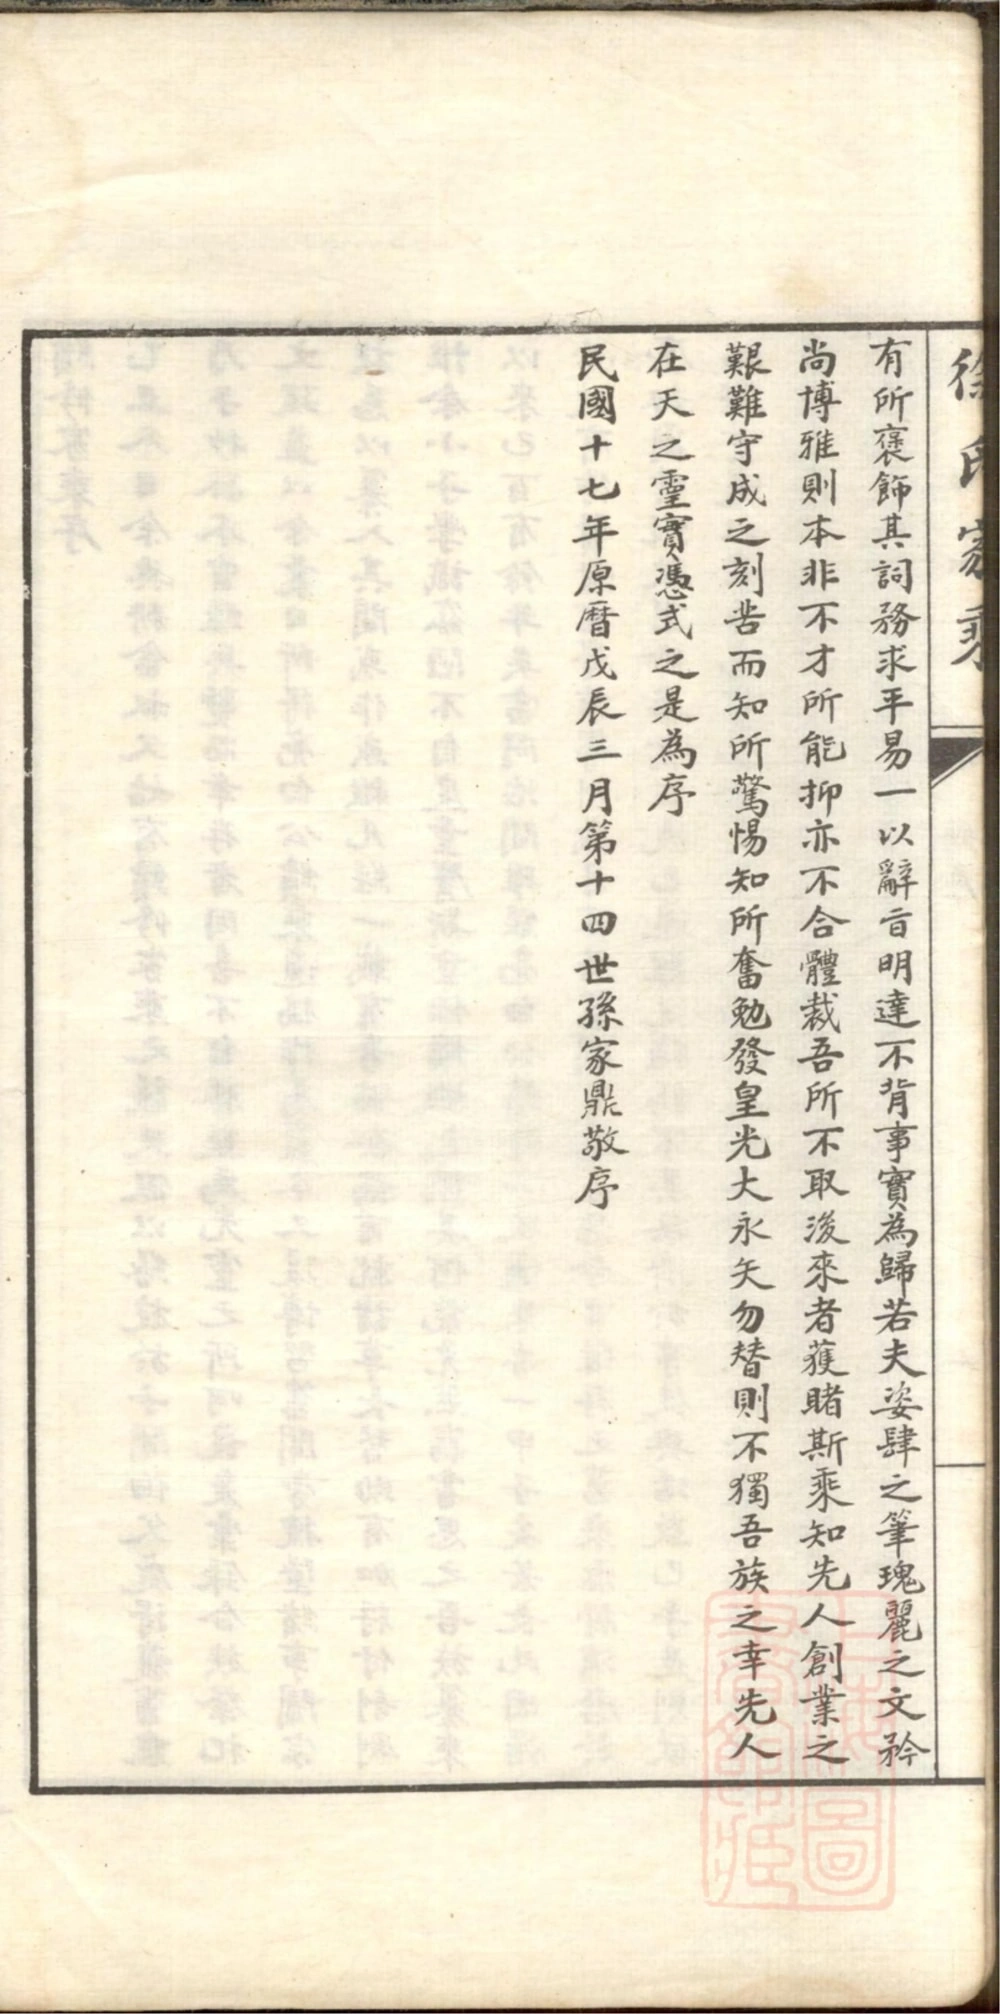 徐氏家乘
有所褒飾其詞務求平易一以辭旨明達不背事實為歸若夫姿肆之筆瑰麗之文矜
尚博雅則本非不才所能抑亦不合體裁吾所不取後來者獲睹斯乘知先人創業之
艱難守成之刻苦而知所驚惕知所奮勉發皇光大永矢勿替則不獨吾族之幸先人
在天之靈實憑式之是為序
民國十七年原曆戊辰三月第十四世孫家鼎敬序
上海圖
書館藏